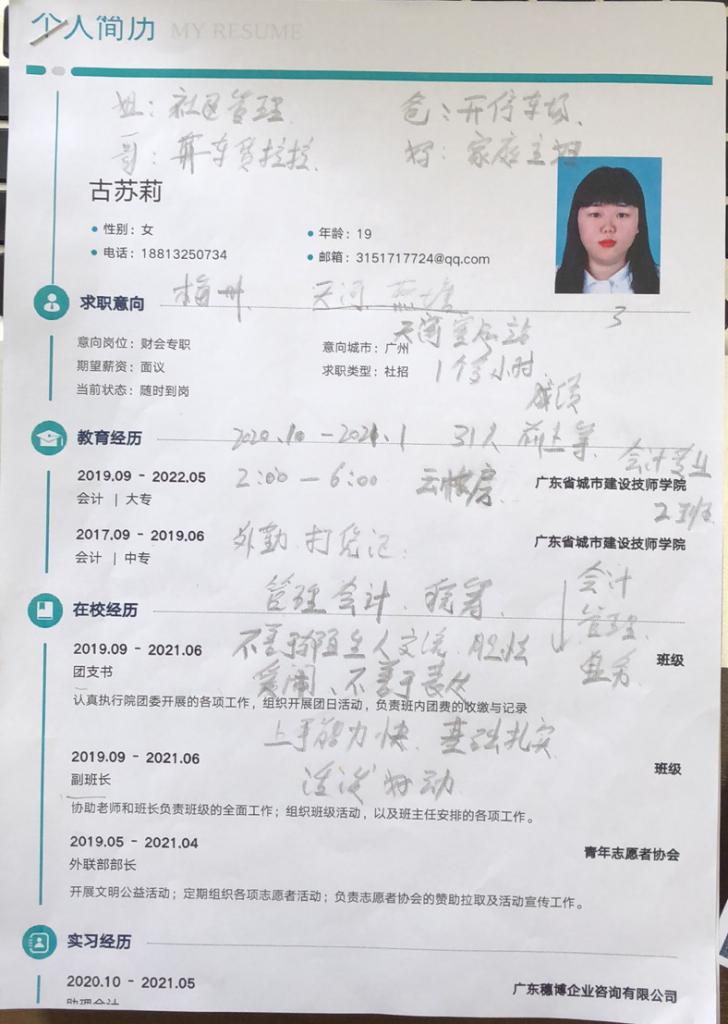 个人简历 MY RESUME
姐：社区管理 爸：开停车场
哥：货拉拉 妈：家庭主妇
古苏莉
性别：女 年龄：19
电话：18813250734 邮箱：3151717724@qq.com
求职意向 梅州 天河
3
天河客运站
意向岗位：财会专职 意向城市：广州
期望薪资：面议 求职类型：社招 1个多小时
当前状态：随时到岗 成绩
教育经历 2020.10 - 2021.1 31人
会计专业
2019.09 - 2022.05 2:00 — 6:00 广东省城市建设技师学院
会计 | 大专 2班
2017.09 - 2019.06 外勤 广东省城市建设技师学院
会计 | 中专
管理会计 会计
在校经历 管理
2019.09 - 2021.06 不善于和陌生人交流 班级
团支书 不善于表达
认真执行院团委开展的各项工作，组织开展团日活动，负责班内团费的收缴与记录
上手能力快 基础扎实
2019.09 - 2021.06 班级
副班长 活泼好动
协助老师和班长负责班级的全面工作；组织班级活动，以及班主任安排的各项工作。
2019.05 - 2021.04 青年志愿者协会
外联部部长
开展文明公益活动；定期组织各项志愿者活动；负责志愿者协会的赞助拉取及活动宣传工作。
实习经历
2020.10 - 2021.05 广东穗博企业咨询有限公司
助理会计